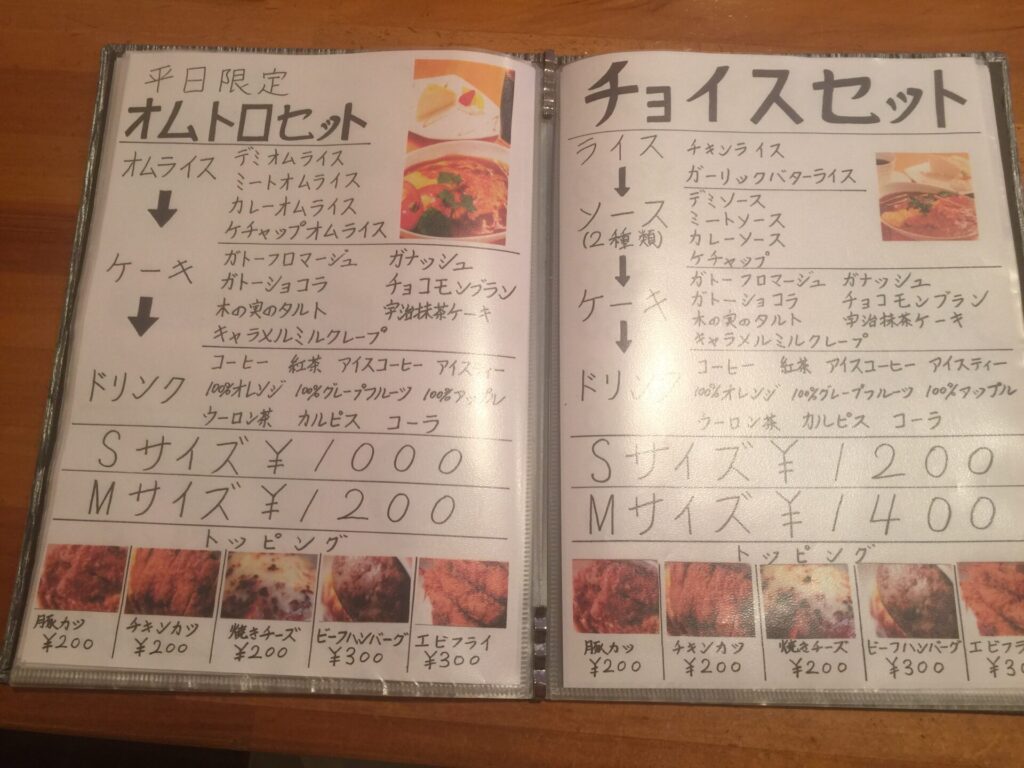 平日限定
オムトロセット
オムライス
デミオムライス
ミートオムライス
カレーオムライス
ケチャップオムライス
ケーキ
ガトーフロマージュ ガナッシュ
ガトーショコラ チョコモンブラン
木の実のタルト 宇治抹茶ケーキ
キャラメルミルクレープ
ドリンク
コーヒー 紅茶 アイスコーヒー アイスティー
100%オレンジ 100%グレープフルーツ 100%アップル
ウーロン茶 カルピス コーラ
Sサイズ ¥1000
Mサイズ ¥1200
トッピング
豚カツ チキンカツ 焼きチーズ ビーフハンバーグ エビフライ
¥200 ¥200 ¥200 ¥300 ¥300
チョイスセット
ライス
チキンライス
ガーリックバターライス
ソース
(2種類)
デミソース
ミートソース
カレーソース
ケチャップ
ケーキ
ガトーフロマージュ ガナッシュ
ガトーショコラ チョコモンブラン
木の実のタルト 宇治抹茶ケーキ
キャラメルミルクレープ
ドリンク
コーヒー 紅茶 アイスコーヒー アイスティー
100%オレンジ 100%グレープフルーツ 100%アップル
ウーロン茶 カルピス コーラ
Sサイズ ¥1200
Mサイズ ¥1400
トッピング
豚カツ チキンカツ 焼きチーズ ビーフハンバーグ エビフラ
¥200 ¥200 ¥200 ¥300